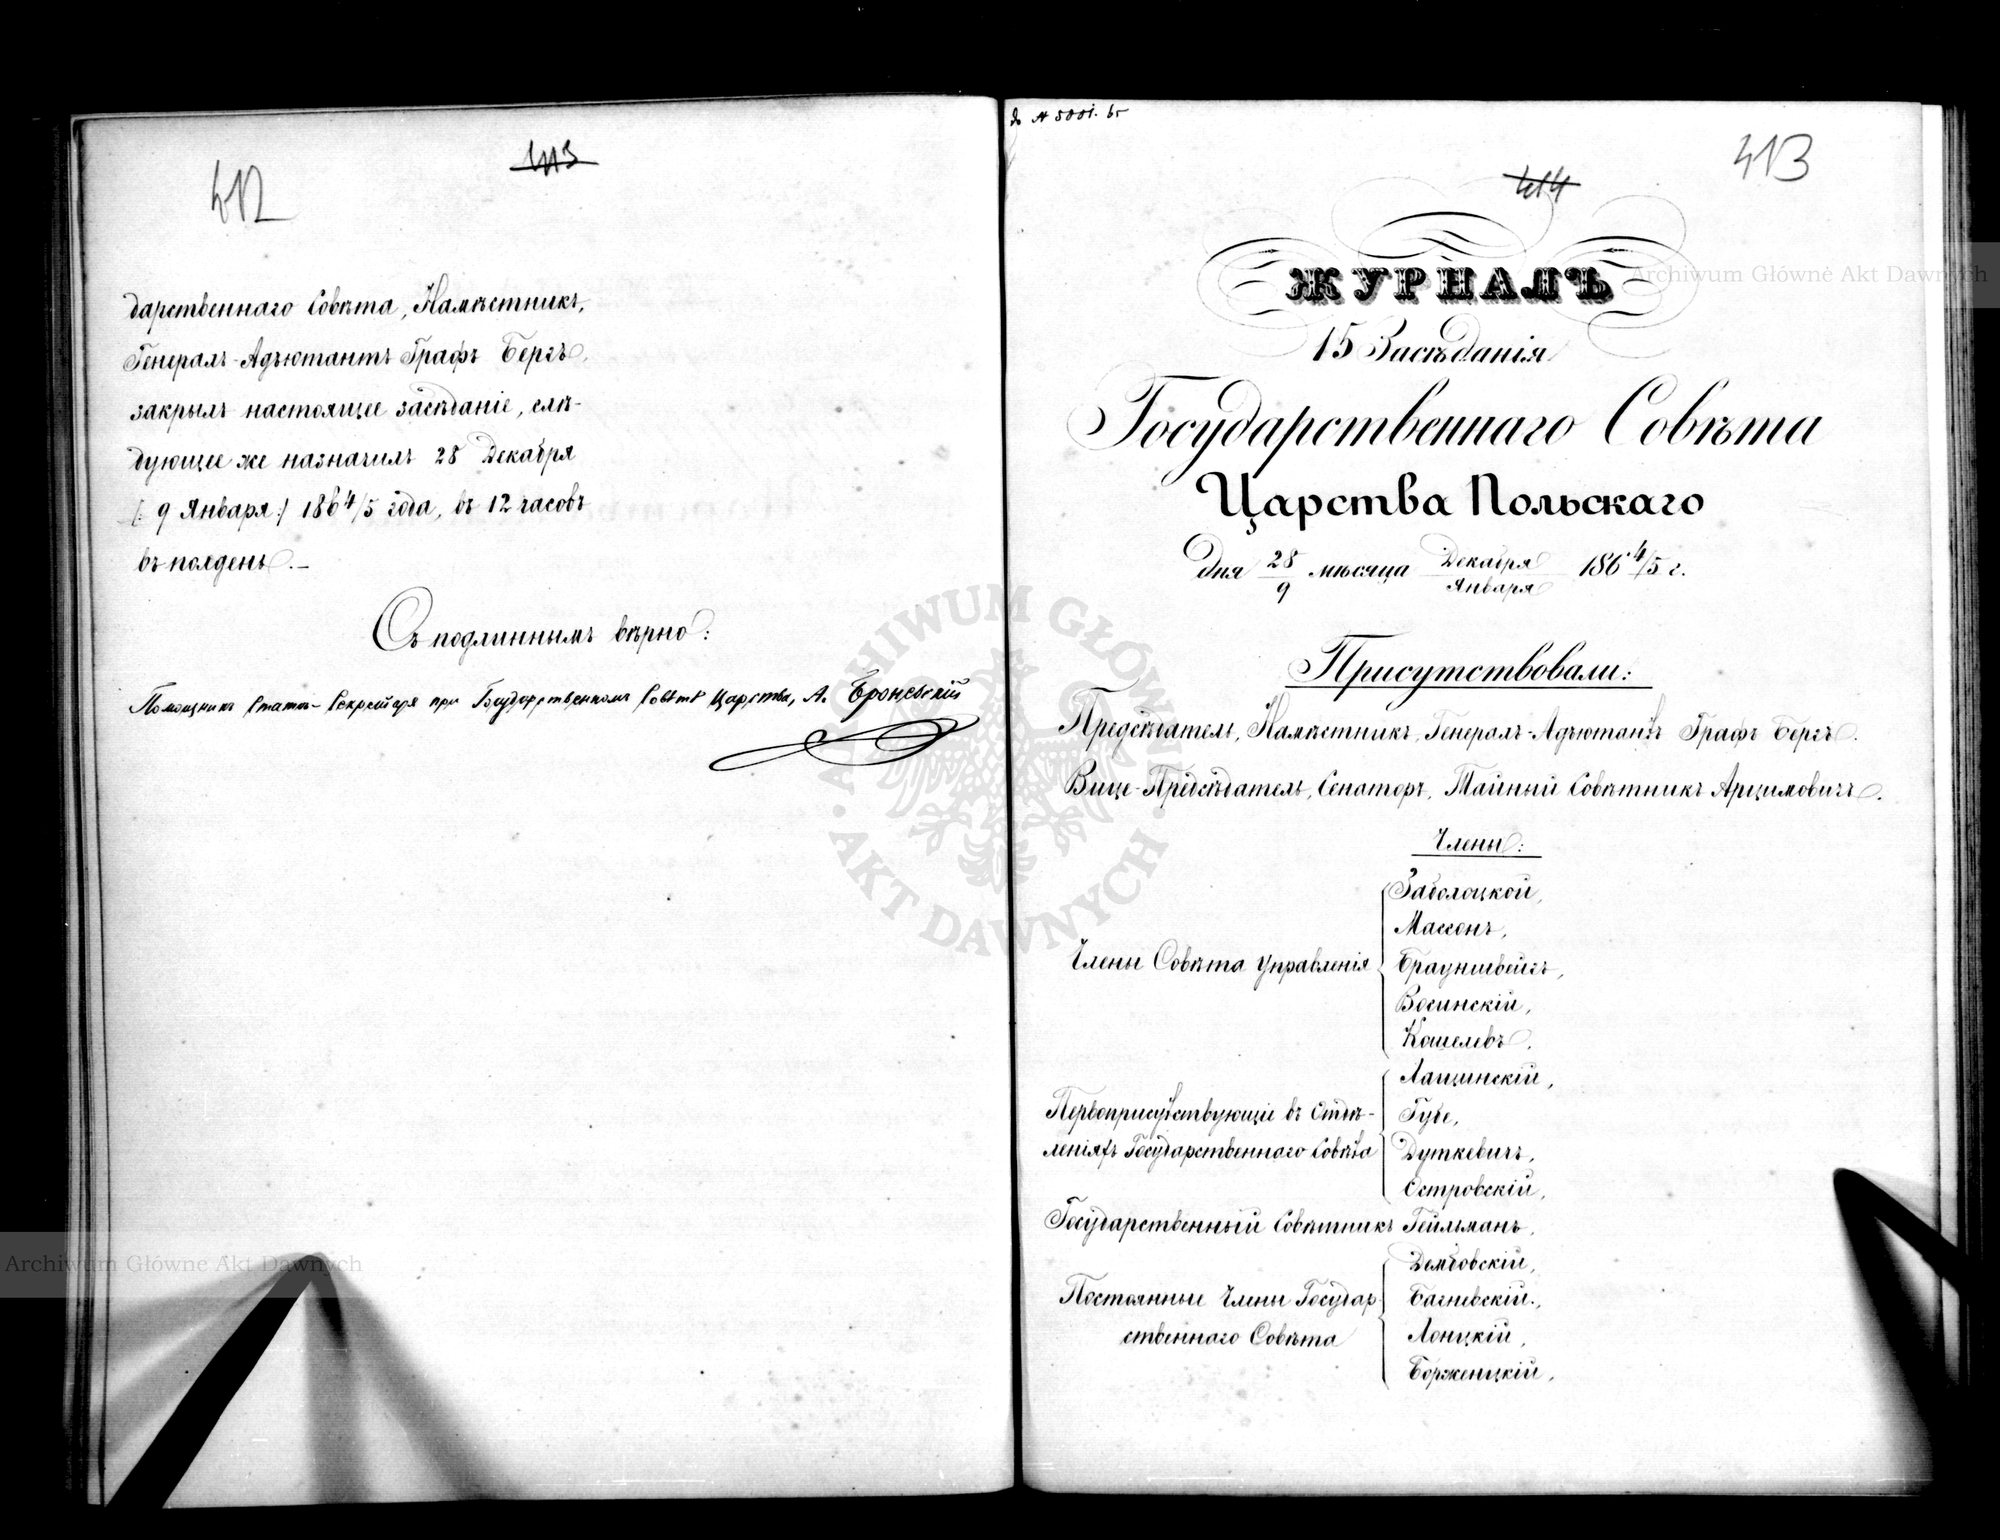 412
413
дарственнаго Совѣта, Намѣстникъ,
Генералъ-Адъютантъ Графъ Бергъ,
закрылъ настоящее засѣданіе, слѣ-
дующее же назначилъ 28 Декабря
/: 9 Января :/ 1864/5 года, въ 12 часовъ
въ полдень. –
Съ подлиннымъ вѣрно:
Помощникъ Статсъ-Секретаря при Государственномъ Совѣтѣ Царства, А. Броневскій
до N 5001. 65
413
414
ЖУРНАЛЪ
15 Засѣданія
Государственнаго Совѣта
Царства Польскаго
Дня 28/9 мѣсяца Декабря/Января 1864/5 г.
Присутствовали:
Предсѣдатель, Намѣстникъ, Генералъ-Адъютантъ Графъ Бергъ.
Вице-Предсѣдатель, Сенаторъ, Тайный Совѣтникъ Арцимовичъ.
Члены:
Члены Совѣта Управленія
Заболоцкой,
Массонъ,
Брауншвейгъ,
Восинскій,
Кошелевъ.
Первоприсутствующіе въ Отдѣ-
леніяхъ Государственнаго Совѣта
Лащинскій,
Губе,
Дуткевичъ,
Островскій,
Государственный Совѣтникъ Гейльманъ,
Постоянные Члены Государ
ственнаго Совѣта
Дембовскій,
Багневскій,
Лонцкій,
Борженцкій,
Archiwum Główne Akt Dawnych
Archiwum Główne Akt Dawnych
ARCHIWUM GŁÓWNE · AKT DAWNYCH ·